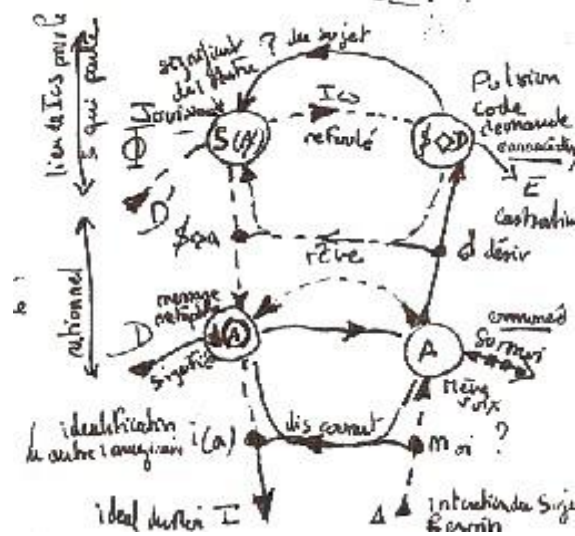 lieu de Ics pour le
S qui parle
signifiant
de l'Autre
? du sujet
Jouissance
Φ
S(Ⱥ)
Ics
refoulé
$◇D
Pulsion
code
demande
E
castration
D'
$◇a
rêve
d désir
rationnel
message
D
signifié
A
A
énoncé
Surmoi
Mère
voix
identification
autre imaginaire i(a)
discourant
moi ?
idéal du moi I
Δ intention du Sujet
Besoin